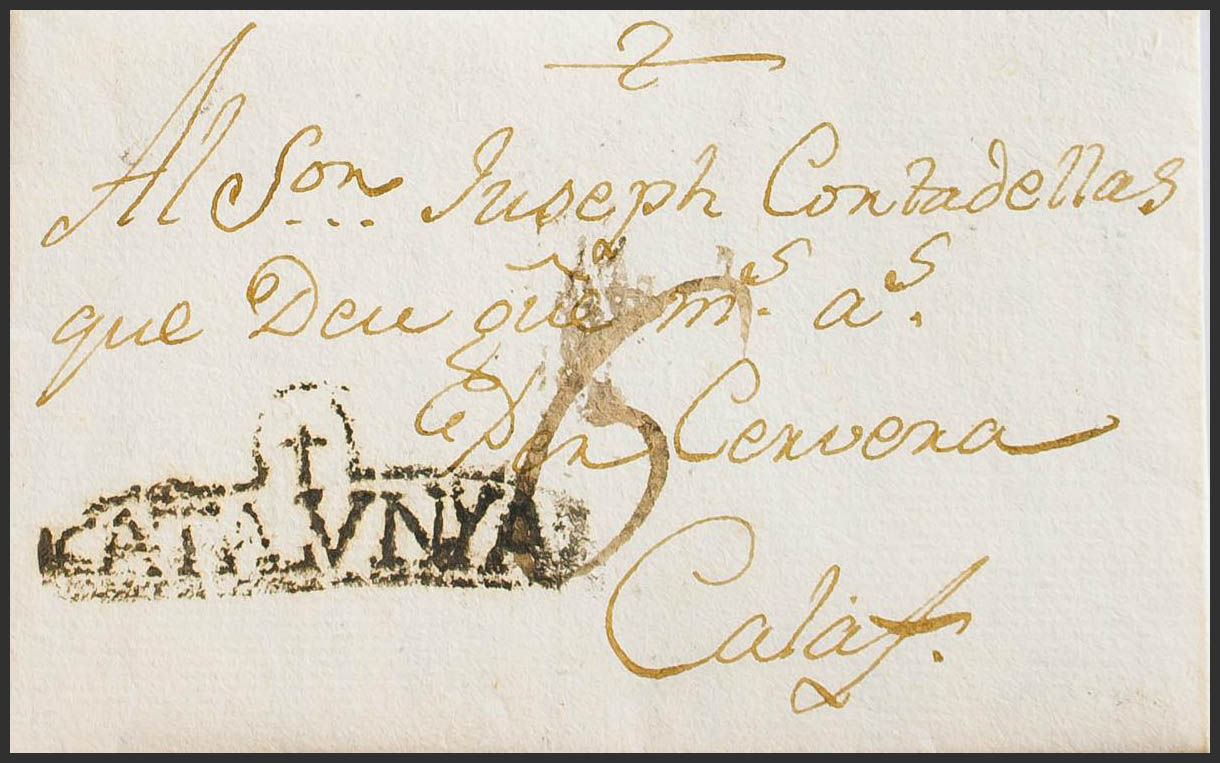 2
Al Son... Juseph Contadellas
que Deu gũe m.s a.s
Per Cervera
5
KATALVNYA
Calaf.